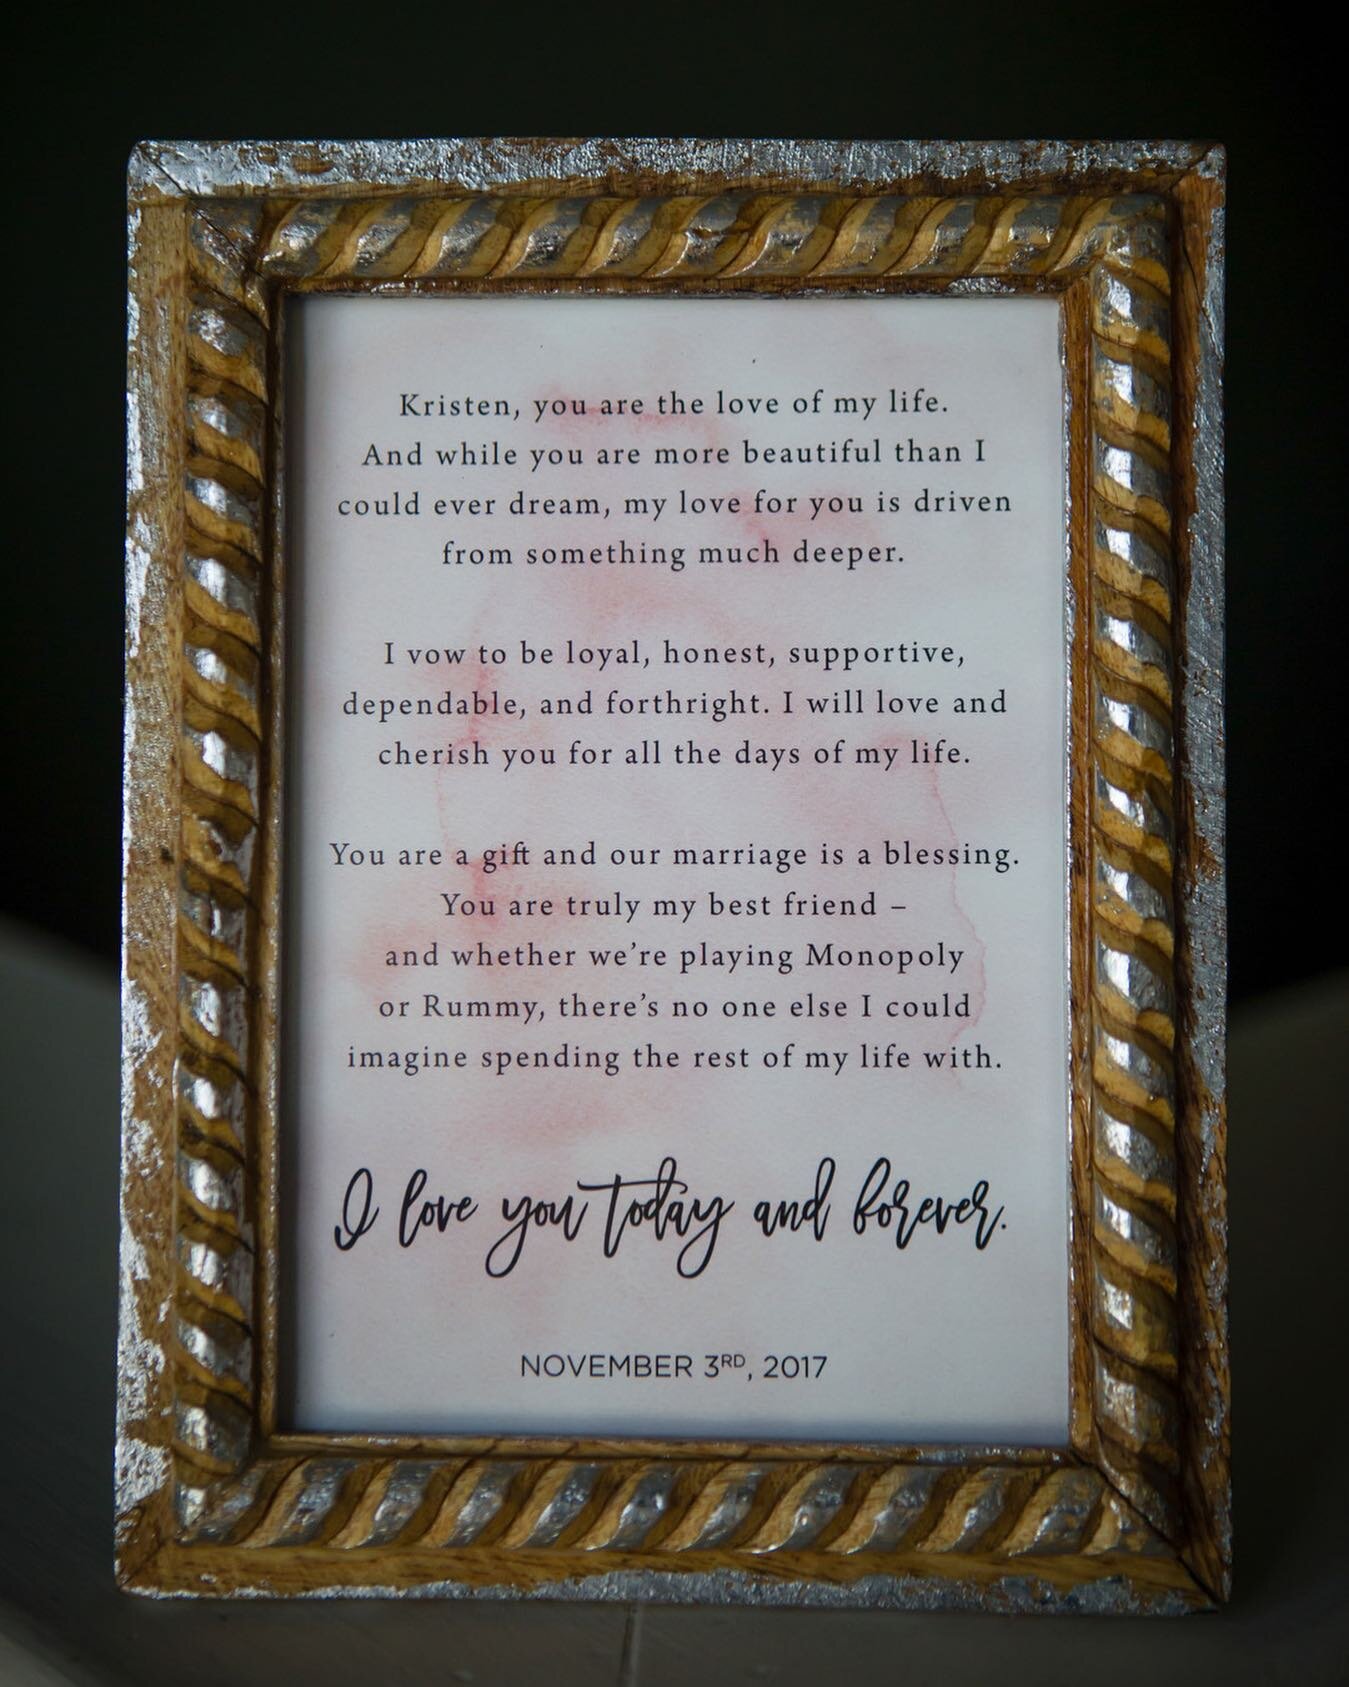 Kristen, you are the love of my life.
And while you are more beautiful than I
could ever dream, my love for you is driven
from something much deeper.
I vow to be loyal, honest, supportive,
dependable, and forthright. I will love and
cherish you for all the days of my life.
You are a gift and our marriage is a blessing.
You are truly my best friend –
and whether we’re playing Monopoly
or Rummy, there’s no one else I could
imagine spending the rest of my life with.
I love you today and forever.
NOVEMBER 3RD, 2017